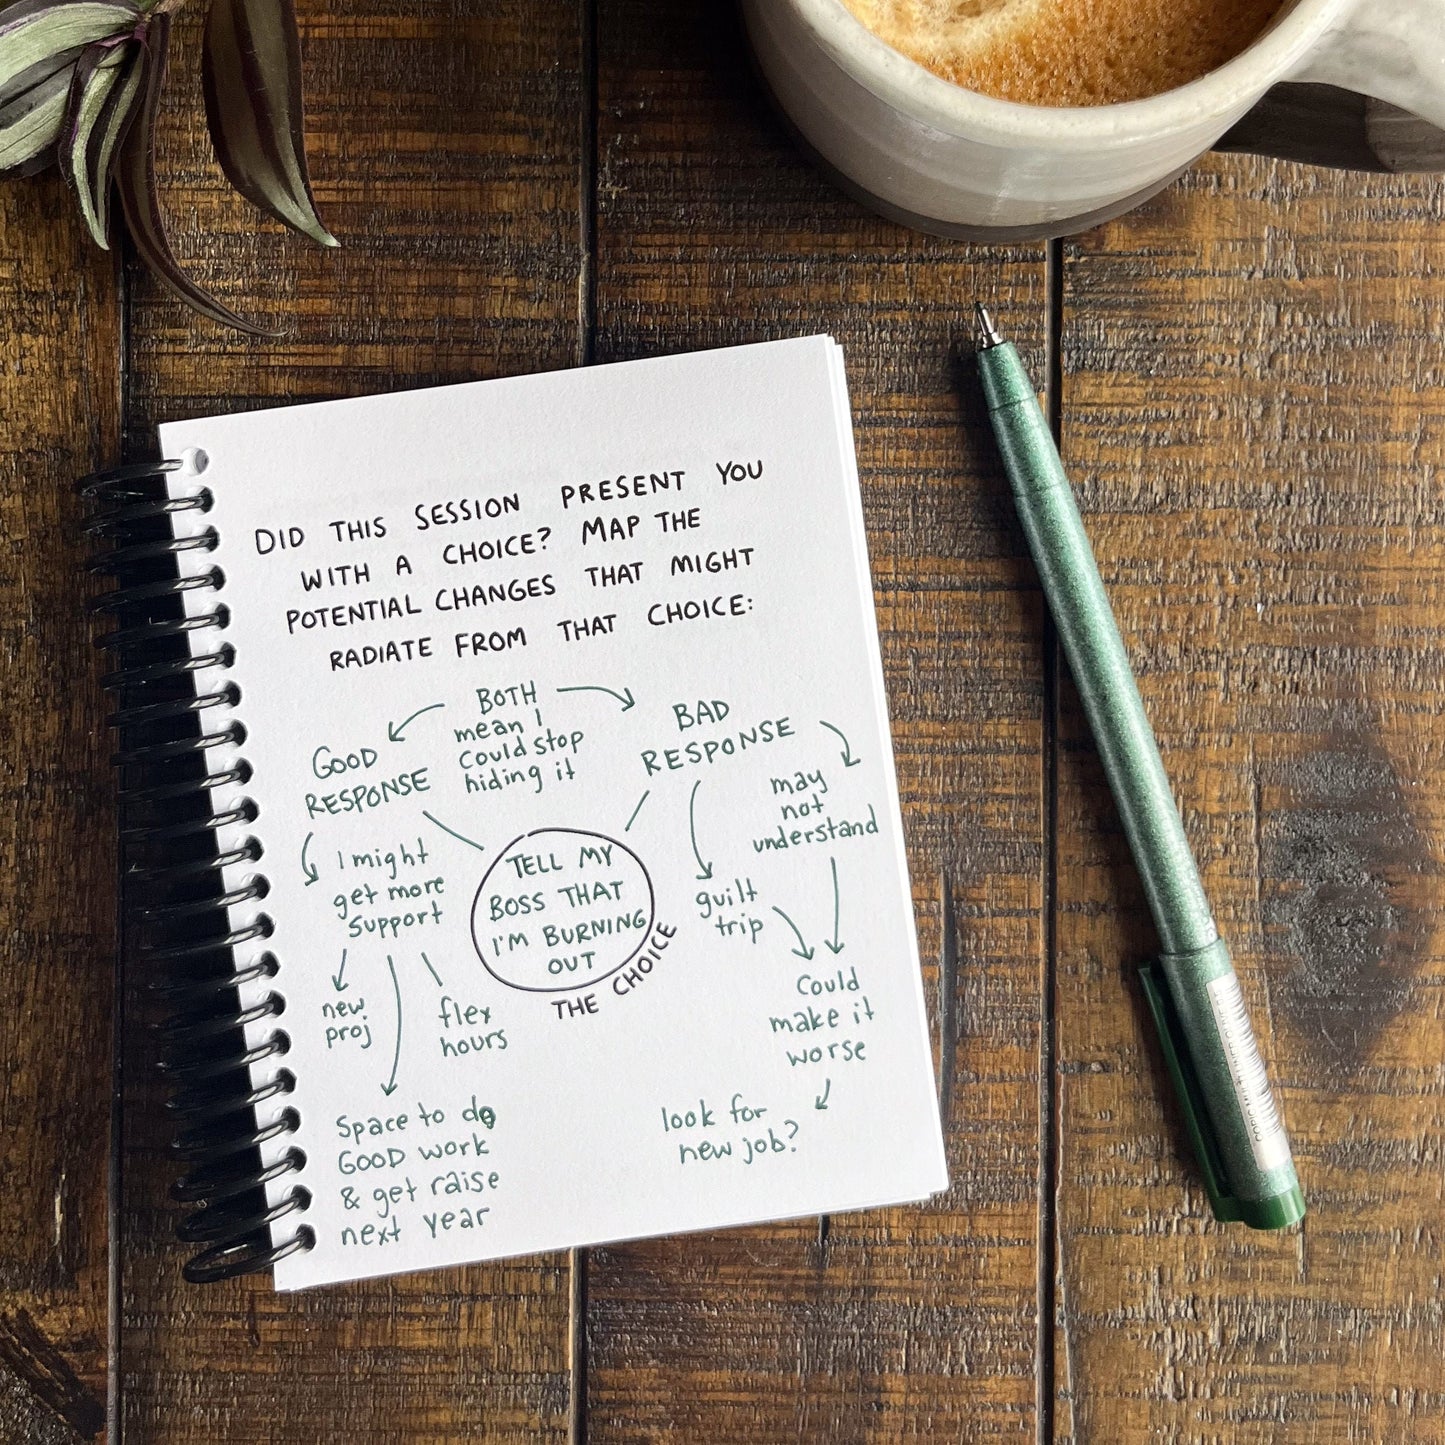 DID THIS SESSION PRESENT YOU
WITH A CHOICE? MAP THE
POTENTIAL CHANGES THAT MIGHT
RADIATE FROM THAT CHOICE:
BOTH
mean I
could stop
hiding it
GOOD
RESPONSE
BAD
RESPONSE
I might
get more
support
new
proj
flex
hours
Space to do
GOOD work
& get raise
next year
TELL MY
BOSS THAT
I'M BURNING
OUT
THE CHOICE
may
not
understand
guilt
trip
Could
make it
worse
look for
new job?